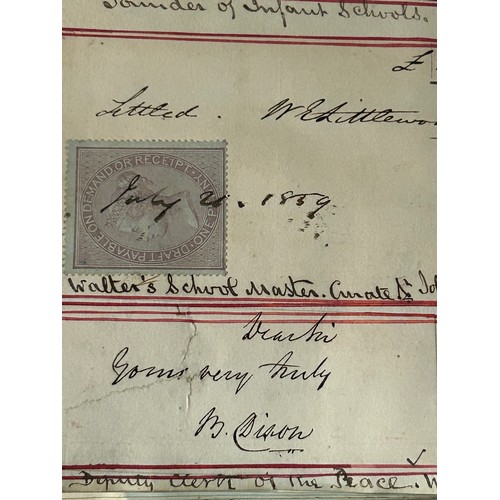 Founder of Infant Schools.
£
Settled. W E Littlewo
DRAFT PAYABLE ON DEMAND. OR RECEIPT. ONE PENNY
July 21. 1859
Walter's School Master. Curate Dr Jo
Dear Sir
Yours very truly
B. Dixon
Deputy Clerk of the Peace. W